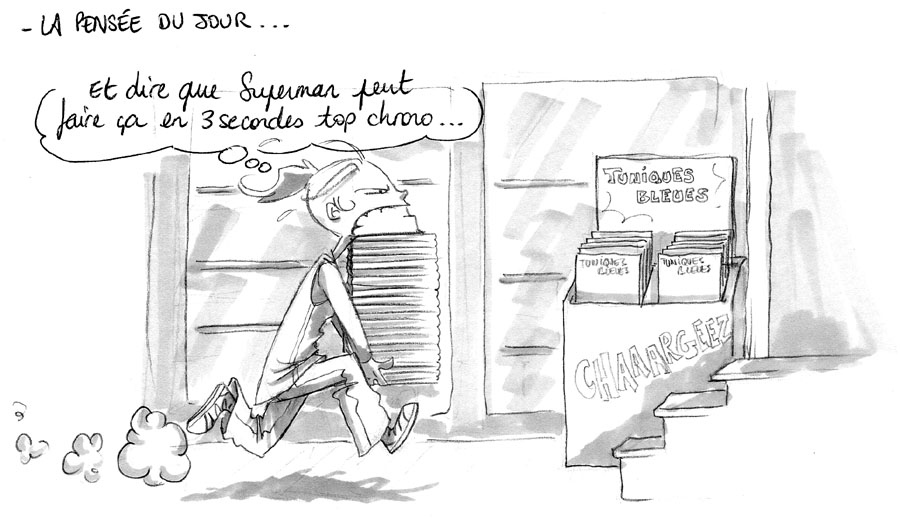 - LA PENSÉE DU JOUR...
Et dire que Superman peut
faire ça en 3 secondes top chrono...
TUNIQUES
BLEUES
TUNIQUES
BLEUES
TUNIQUES
BLEUES
CHAAARGEEZ